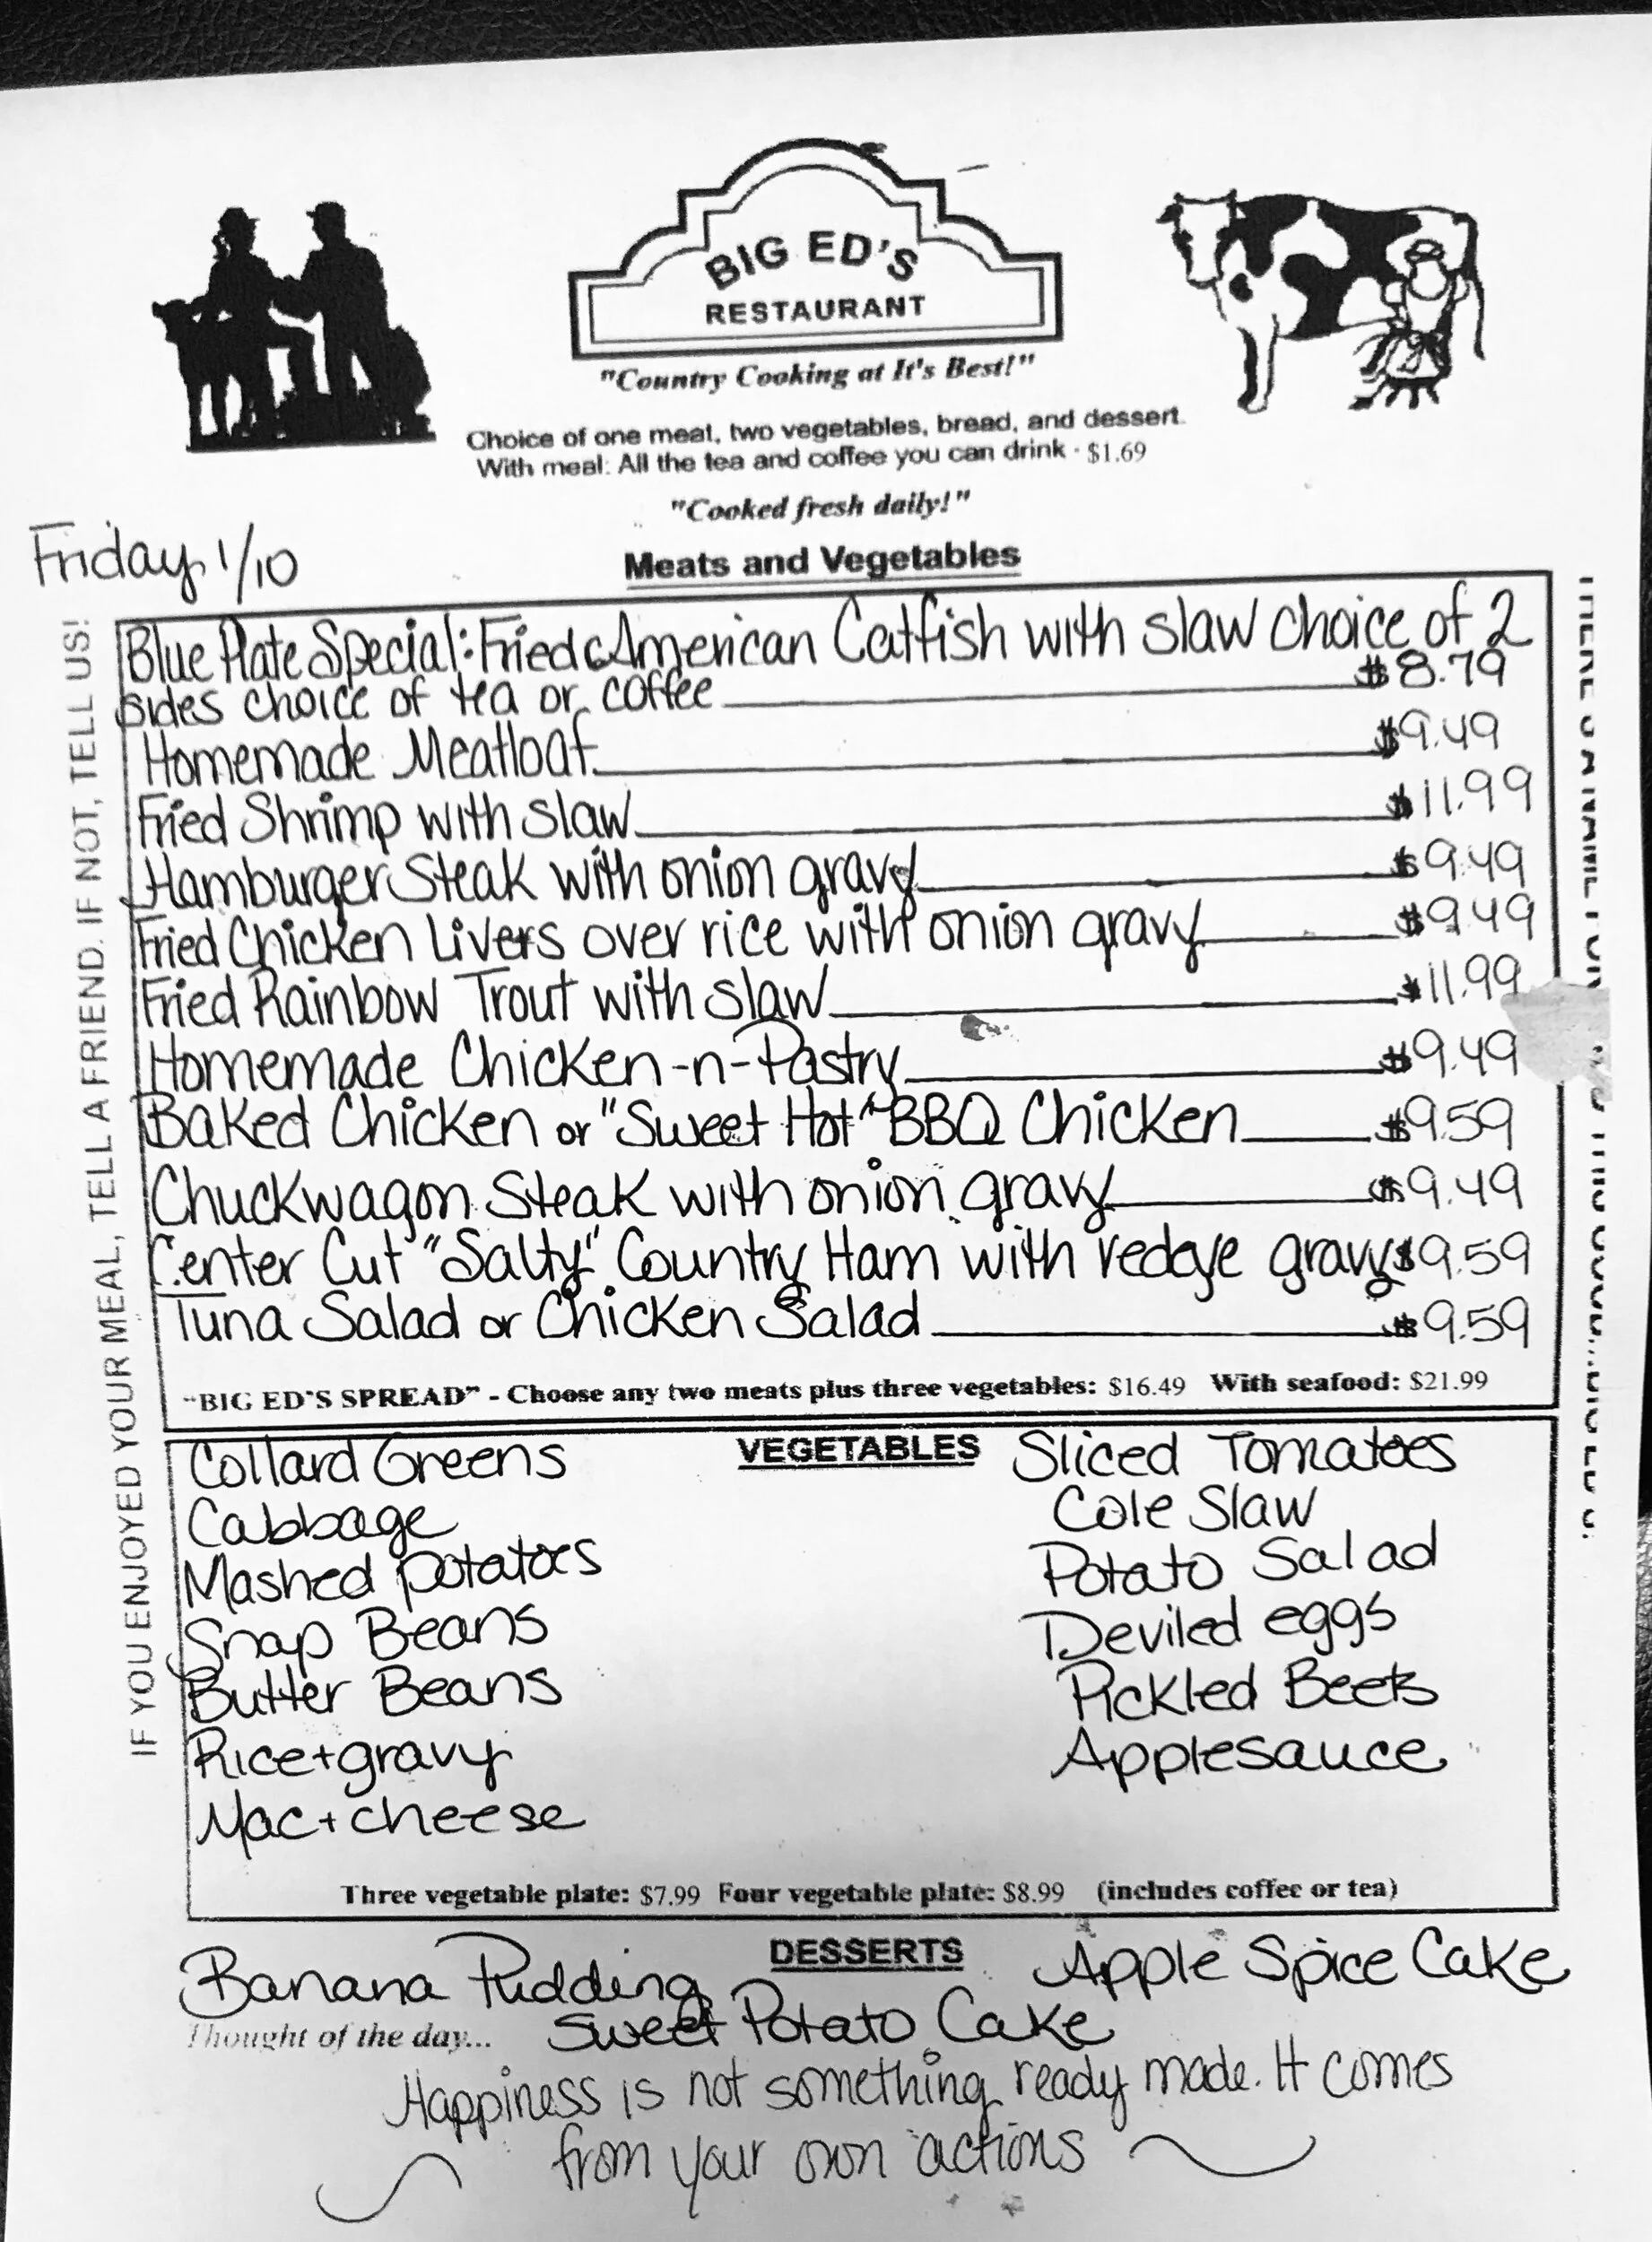 BIG ED'S
RESTAURANT
"Country Cooking at It's Best!"
Choice of one meat, two vegetables, bread, and dessert.
With meal: All the tea and coffee you can drink - $1.69
"Cooked fresh daily!"
Friday 1/10
Meats and Vegetables
Blue Plate Special: Fried American Catfish with slaw choice of 2
sides choice of tea or coffee $8.79
Homemade Meatloaf $9.49
Fried Shrimp with slaw $11.99
Hamburger Steak with onion gravy $9.49
Fried Chicken Livers over rice with onion gravy $9.49
Fried Rainbow Trout with slaw $11.99
Homemade Chicken-n-Pastry $9.49
Baked Chicken or "Sweet Hot" BBQ Chicken $9.59
Chuckwagon Steak with onion gravy $9.49
Center Cut "Salty" Country Ham with redeye gravy $9.59
Tuna Salad or Chicken Salad $9.59
"BIG ED'S SPREAD" - Choose any two meats plus three vegetables: $16.49 With seafood: $21.99
VEGETABLES
Collard Greens
Cabbage
Mashed potatoes
Snap Beans
Butter Beans
Rice + gravy
Mac + cheese
Sliced Tomatoes
Cole Slaw
Potato Salad
Deviled eggs
Pickled Beets
Applesauce
Three vegetable plate: $7.99 Four vegetable plate: $8.99 (includes coffee or tea)
DESSERTS
Banana Pudding
Apple Spice Cake
Sweet Potato Cake
Thought of the day...
Happiness is not something ready made. It comes
from your own actions
IF YOU ENJOYED YOUR MEAL, TELL A FRIEND. IF NOT, TELL US!